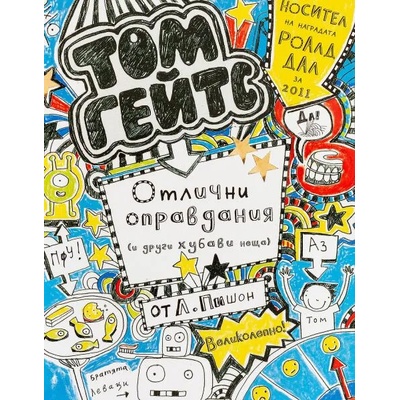 ТОМ
ГЕЙТС
НОСИТЕЛ
НА НАГРАДАТА
РОАЛД
ДАЛ
ЗА
2011
ДА!
Отлични
оправдания
(и други хубави неща)
от Л. Пишон
ПФУ!
АЗ
Том
Великолепно!
Братята
Леваци